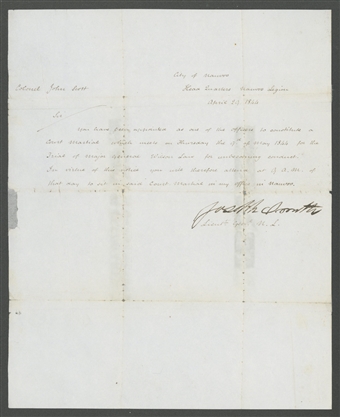 City of Nauvoo
Colonel John Scott Head Quarters Nauvoo Legion
April 23, 1844
Sir
You have been appointed as one of the officers to constitute a
Court Martial which meets on Thursday the of May 1844 for the
trial of Major General Wilson Law for unbecoming conduct.
In virtue of this office you will therefore attend at 9 A. M. of
that day to sit in said Court Martial in my office in Nauvoo.
Joseph Smith
Lieut Genl N. L.